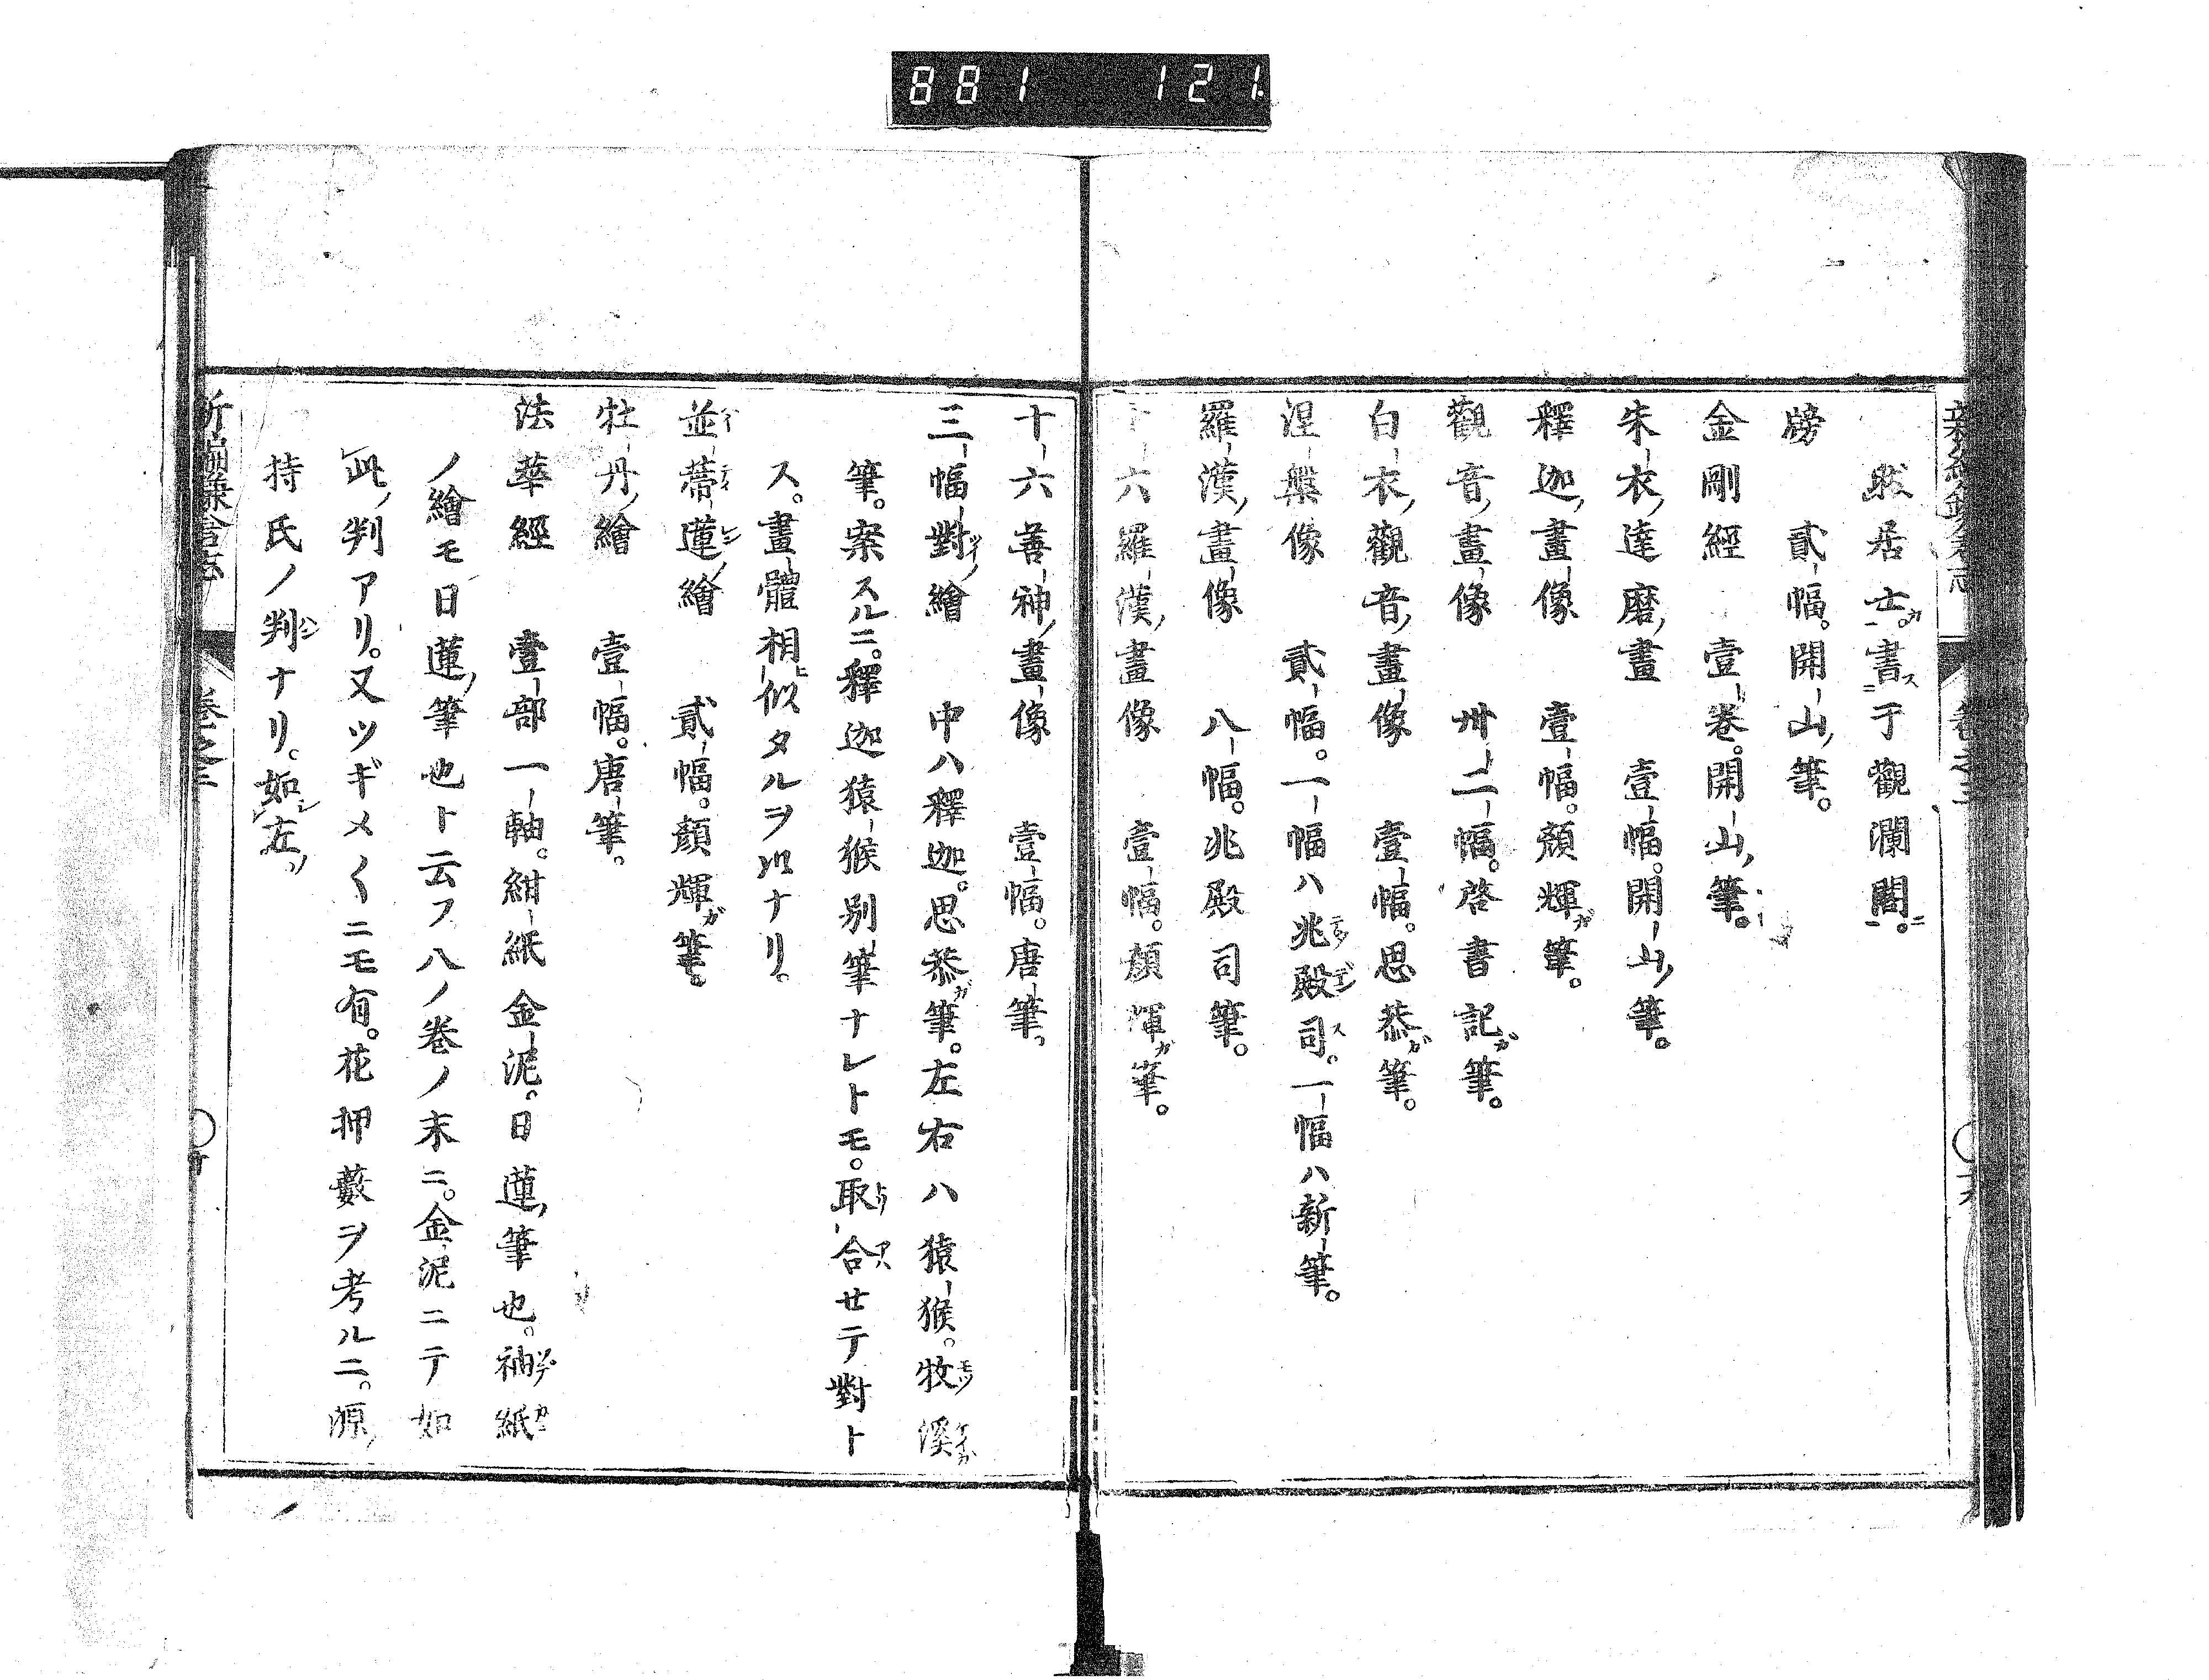 881 121
然居士。書于觀瀾閣。
牓 貳幅。開山筆。
金剛經 壹卷。開山筆。
朱衣達磨畫 壹幅。開山筆。
釋迦畫像 壹幅。顏輝ガ筆。
觀音畫像 卅二幅。啓書記ガ筆。
白衣觀音畫像 壹幅。思恭ガ筆。
涅槃像 貳幅。一幅ハ兆殿司。一幅ハ新筆。
羅漢畫像 八幅。兆殿司筆。
十六羅漢畫像 壹幅。顏輝ガ筆。
十六善神畫像 壹幅。唐筆。
三幅對ノ繪 中ハ釋迦。思恭ガ筆。左右ハ猿猴。牧溪ガ
筆。案スルニ。釋迦猿猴別筆ナレトモ。取合セテ對ト
ス。畫體相似タルヲ以ナリ。
並蔕蓮ノ繪 貳幅。顏輝ガ筆。
牡丹ノ繪 壹幅。唐筆。
法華經 壹部一軸。紺紙金泥。日蓮ノ筆也。袖紙
ノ繪モ日蓮ノ筆也ト云フ八ノ卷ノ末ニ。金泥ニテ如
此ノ判アリ。又ツギメ〱ニモ有。花押藪ヲ考ルニ。源ノ
持氏ノ判ナリ。如左。
新編鎌倉志 卷之三